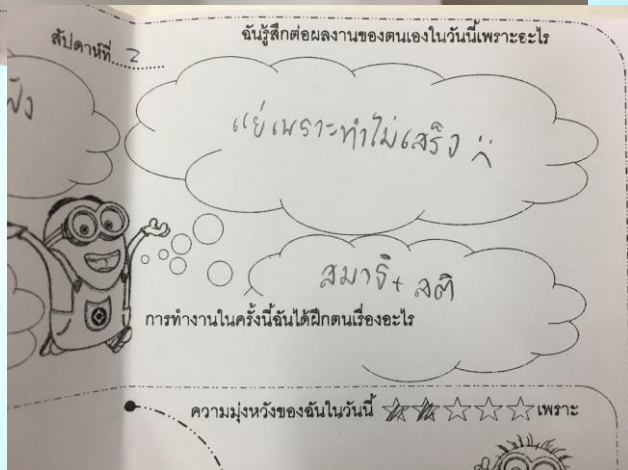 สัปดาห์ที่ 2
ฉันรู้สึกต่อผลงานของตนเองในวันนี้เพราะอะไร
แย่เพราะทำไม่เสร็จ
สมาธิ + สติ
การทำงานในครั้งนี้ฉันได้ฝึกตนเรื่องอะไร
ความมุ่งหวังของฉันในวันนี้ เพราะ